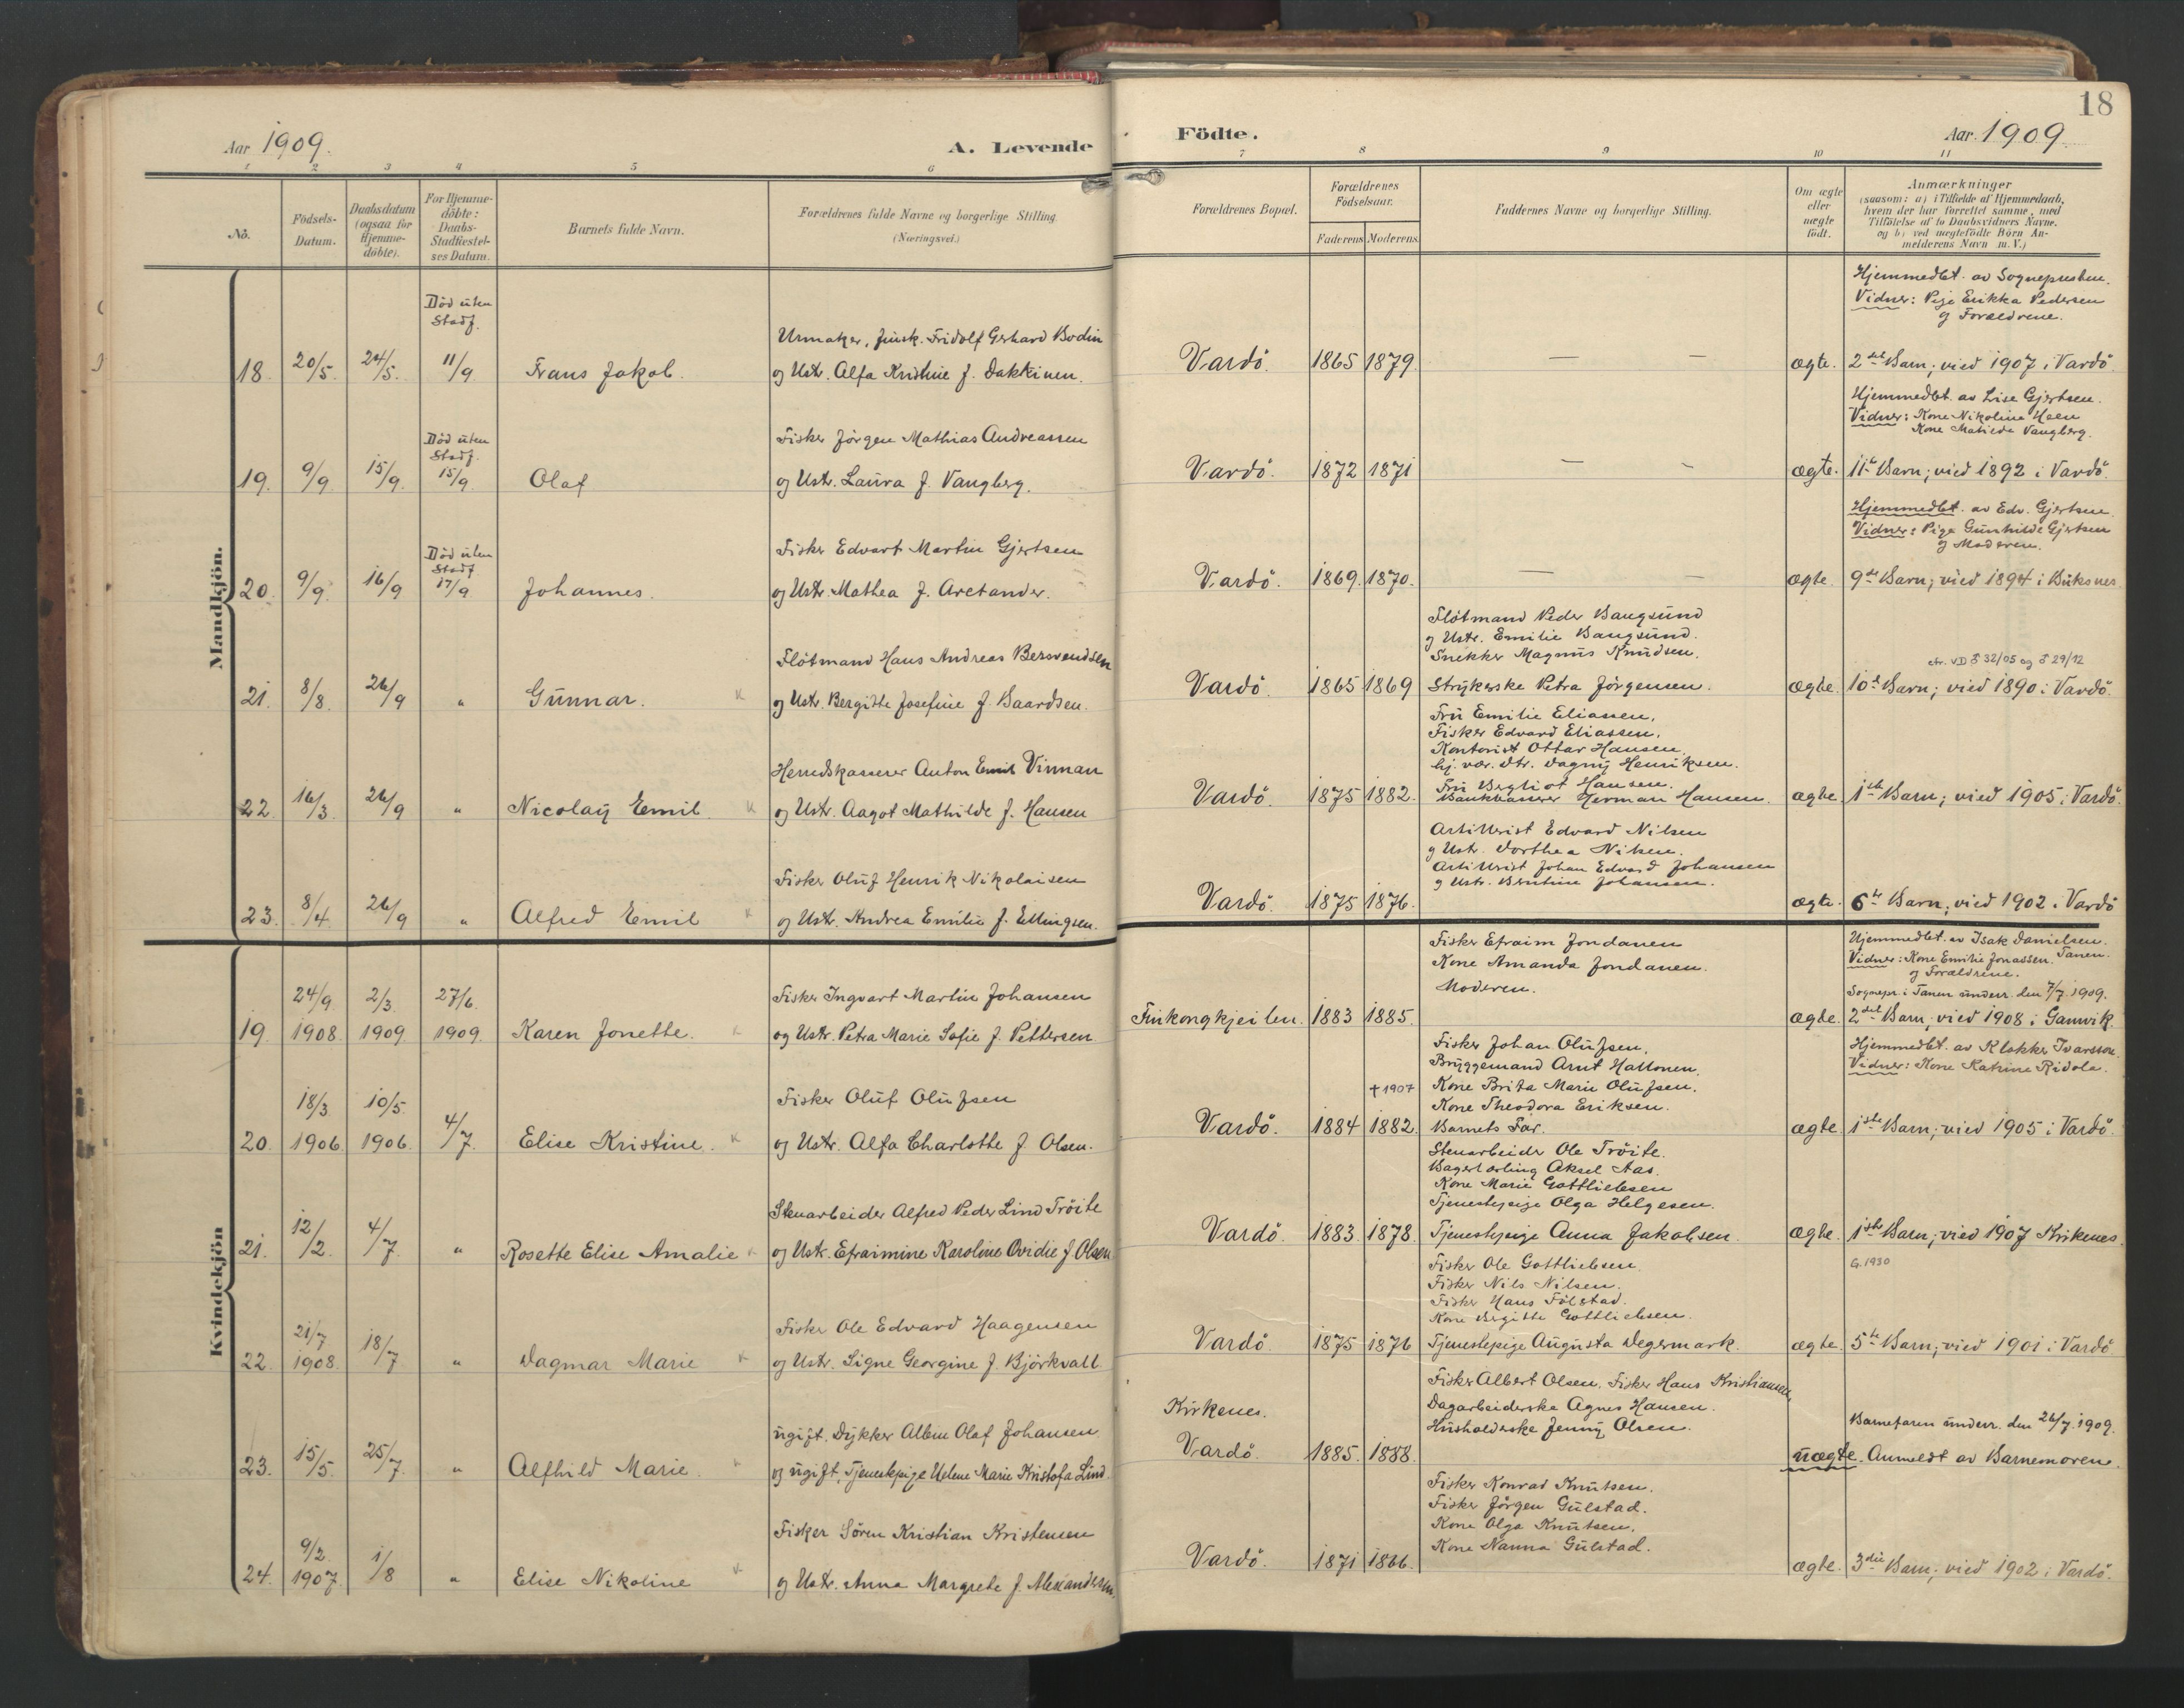 18
Aar 1909.
A. Levende
Födte.
Aar. 1909.
1 2 3 4 5 6 7 8 9 10 11
No.
Födsels-
Datum.
Daabsdatum
(ogsaa for
Hjemme-
döbte).
For Hjemme-
döbte:
Daabs-
Stadfæstel-
ses Datum.
Barnets fulde Navn.
Forældrenes fulde Navne og borgerlige Stilling.
(Næringsvei.)
Forældrenes Bopæl.
Forældrenes
Födselsaar.
Faderens Moderens
Faddernes Navne og borgerlige Stilling.
Om ægte
eller
uægte
födt.
Anmærkninger
(saasom: a) i Tilfælde af Hjemmedaab,
hvem der har forrettet samme, med
Tilföielse af to Daabsvidners Navne.
og b) ved uægtefödte Börn An-
melderens Navn m. V.)
Mandkjön.
Död uten
Stadf.
18. 20/5. 24/5. 11/9 Frans Jakob.
Urmaker, finsk. Fridolf Gerhard Bodin
og Ustr. Alfa Kristine f. Dakkinen.
Vardö. 1865 1879. — — ægte.
Hjemmedbt. av Sognepresten.
Vidner: Pige Erikka Pedersen
og Forældrene.
2det Barn; vied 1907 i Vardö.
Död uten
Stadf.
19. 9/9. 15/9. 15/9. Olaf
Fisker Jörgen Mathias Andreassen
og Ustr. Laura f. Vangberg.
Vardö. 1872 1871 — — ægte.
Hjemmedbt. av Lise Gjertsen.
Vidner: Kone Nikoline Heen
Kone Matilde Vangberg.
11te Barn; vied 1892 i Vardö.
Död uten
Stadf.
20. 9/9. 16/9 17/9 Johannes.
Fisker Edvart Martin Gjertsen
og Ustr. Mathea f. Arctander.
Vardö. 1869. 1870. — — ægte.
Hjemmedbt. av Edv. Gjertsen
Vidner: Pige Gunhilde Gjertsen
og Moderen.
9de Barn; vied 1894 i Buksnes.
21. 8/8. 26/9 " Gunnar.
Flötmand Hans Andreas Bersvendsen
og Ustr. Bergitte Josefine f. Baardsen.
Vardö. 1865 1869
Flötmand Peder Baugsund
og Ustr. Emilie Baugsund.
Snekker Magnus Knudsen.
Strykerske Petra Jörgensen.
ægte.
10de Barn; vied 1890 i Vardö.
22. 16/3. 26/9 " Nicolay Emil
Herredskasserer Anton Emil Vinnan
og Ustr. Aagot Mathilde f. Hansen
Vardö. 1875 1882.
Fru Emilie Eliassen.
Fisker Edvard Eliassen.
Kontorist Ottar Hansen.
hj. vær. dtr. Dagny Henriksen.
Fru Bergliot Hansen.
Bankkasserer Herman Hansen.
ægte.
1ste Barn; vied 1905 i Vardö.
23. 8/4. 26/9 " Alfred Emil
Fisker Oluf Henrik Nikolaisen
og Ustr. Andrea Emilie f. Ellingsen.
Vardö. 1875 1876.
Artillerist Edvard Nilsen
og Ustr. Dorthea Nilsen.
Artillerist Johan Edvard Johansen
og Ustr. Bentine Johansen.
ægte.
6te Barn; vied 1902 i Vardö
Kvindekjön
19. 24/9 1908. 2/3. 1909. 27/6. 1909. Karen Jonette.
Fisker Ingvart Martin Johansen
og Ustr. Petra Marie Sofie f. Pettersen.
Finkongkjeilen. 1883 1885.
Fisker Efraim Jondanen
Kone Amanda Jondanen.
Moderen.
ægte.
Hjemmedbt. av Isak Danielsen.
Vidner: Kone Emilie Jonassen. Tanen.
og Forældrene.
Sognepr. i Tanen underr. den 7/7. 1909.
2det Barn; vied 1908 i Gamvik.
20. 18/3 1906. 10/5. 1906. 4/7. Elise Kristine.
Fisker Oluf Olufsen
og Ustr. Alfa Charlotte f. Olsen.
Vardö. 1884 1882.
† 1907
Fisker Johan Olufsen.
Bryggemand Arnt Hallonen.
Kone Brita Marie Olufsen.
Kone Theodora Eriksen.
Barnets Far.
ægte.
Hjemmedbt. av Klokker Ivarsson.
Vidner: Kone Katrine Ridola.
1ste Barn; vied 1905 i Vardö.
21. 12/2. 4/7. " Rosette Elise Amalie
Stenarbeider Alfred Peder Lind Tröite
og Ustr. Efraimine Karoline Ovidie f. Olsen
Vardö. 1883. 1878.
Stenarbeider Ole Tröite.
Bagerlærling Aksel Aas.
Kone Marie Gottliebsen
Tjenestepige Olga Helgesen.
Tjenestepige Anna Jakobsen.
ægte.
1ste Barn; vied 1907 Kirkenes.
G. 1930
22. 21/7 1908. 18/7. " Dagmar Marie
Fisker Ole Edvard Haagensen
og Ustr. Signe Georgine f. Björkvall
Vardö. 1875 1876
Fisker Ole Gottliebsen.
Fisker Nils Nilsen.
Fisker Hans Fölstad.
Kone Bergitte Gottliebsen.
Tjenestepige Augusta Degermark.
ægte.
5te Barn; vied 1901 i Vardö.
23. 15/5. 25/7. " Alfhild Marie.
ugift. Dykker Albin Olaf Johansen
og ugift. Tjenestepige Helene Marie Kristofa Lind.
Kirkenes.
Vardö. 1885. 1888.
Fisker Albert Olsen. Fisker Hans Kristiansen,
Dagarbeiderske Agnes Hansen.
Husholderske Jenny Olsen.
uægte.
Barnefaren underr. den 26/7. 1909.
Anmeldt av Barnemoren.
24. 9/2. 1907. 1/8 " Elise Nikoline
Fisker Sören Kristian Kristensen
og Ustr. Anna Margrete f. Alexandersen.
Vardö. 1871 1866.
Fisker Konrad Knutsen.
Fisker Jörgen Gulstad.
Kone Olga Knutsen.
Kone Nanna Gulstad.
ægte.
3die Barn; vied 1902 i Vardö.